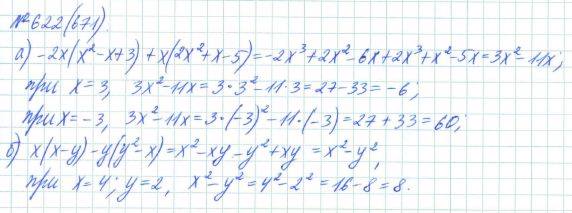 №622(671).
а) -2x(x²-x+3)+x(2x²+x-5)=-2x³+2x²-6x+2x³+x²-5x=3x²-11x;
при x=3, 3x²-11x=3·3²-11·3=27-33=-6;
при x=-3, 3x²-11x=3·(-3)²-11·(-3)=27+33=60;
б) x(x-y)-y(y²-x)=x²-xy-y²+xy=x²-y²,
при x=4; y=2, x²-y²=4²-2²=16-8=8.